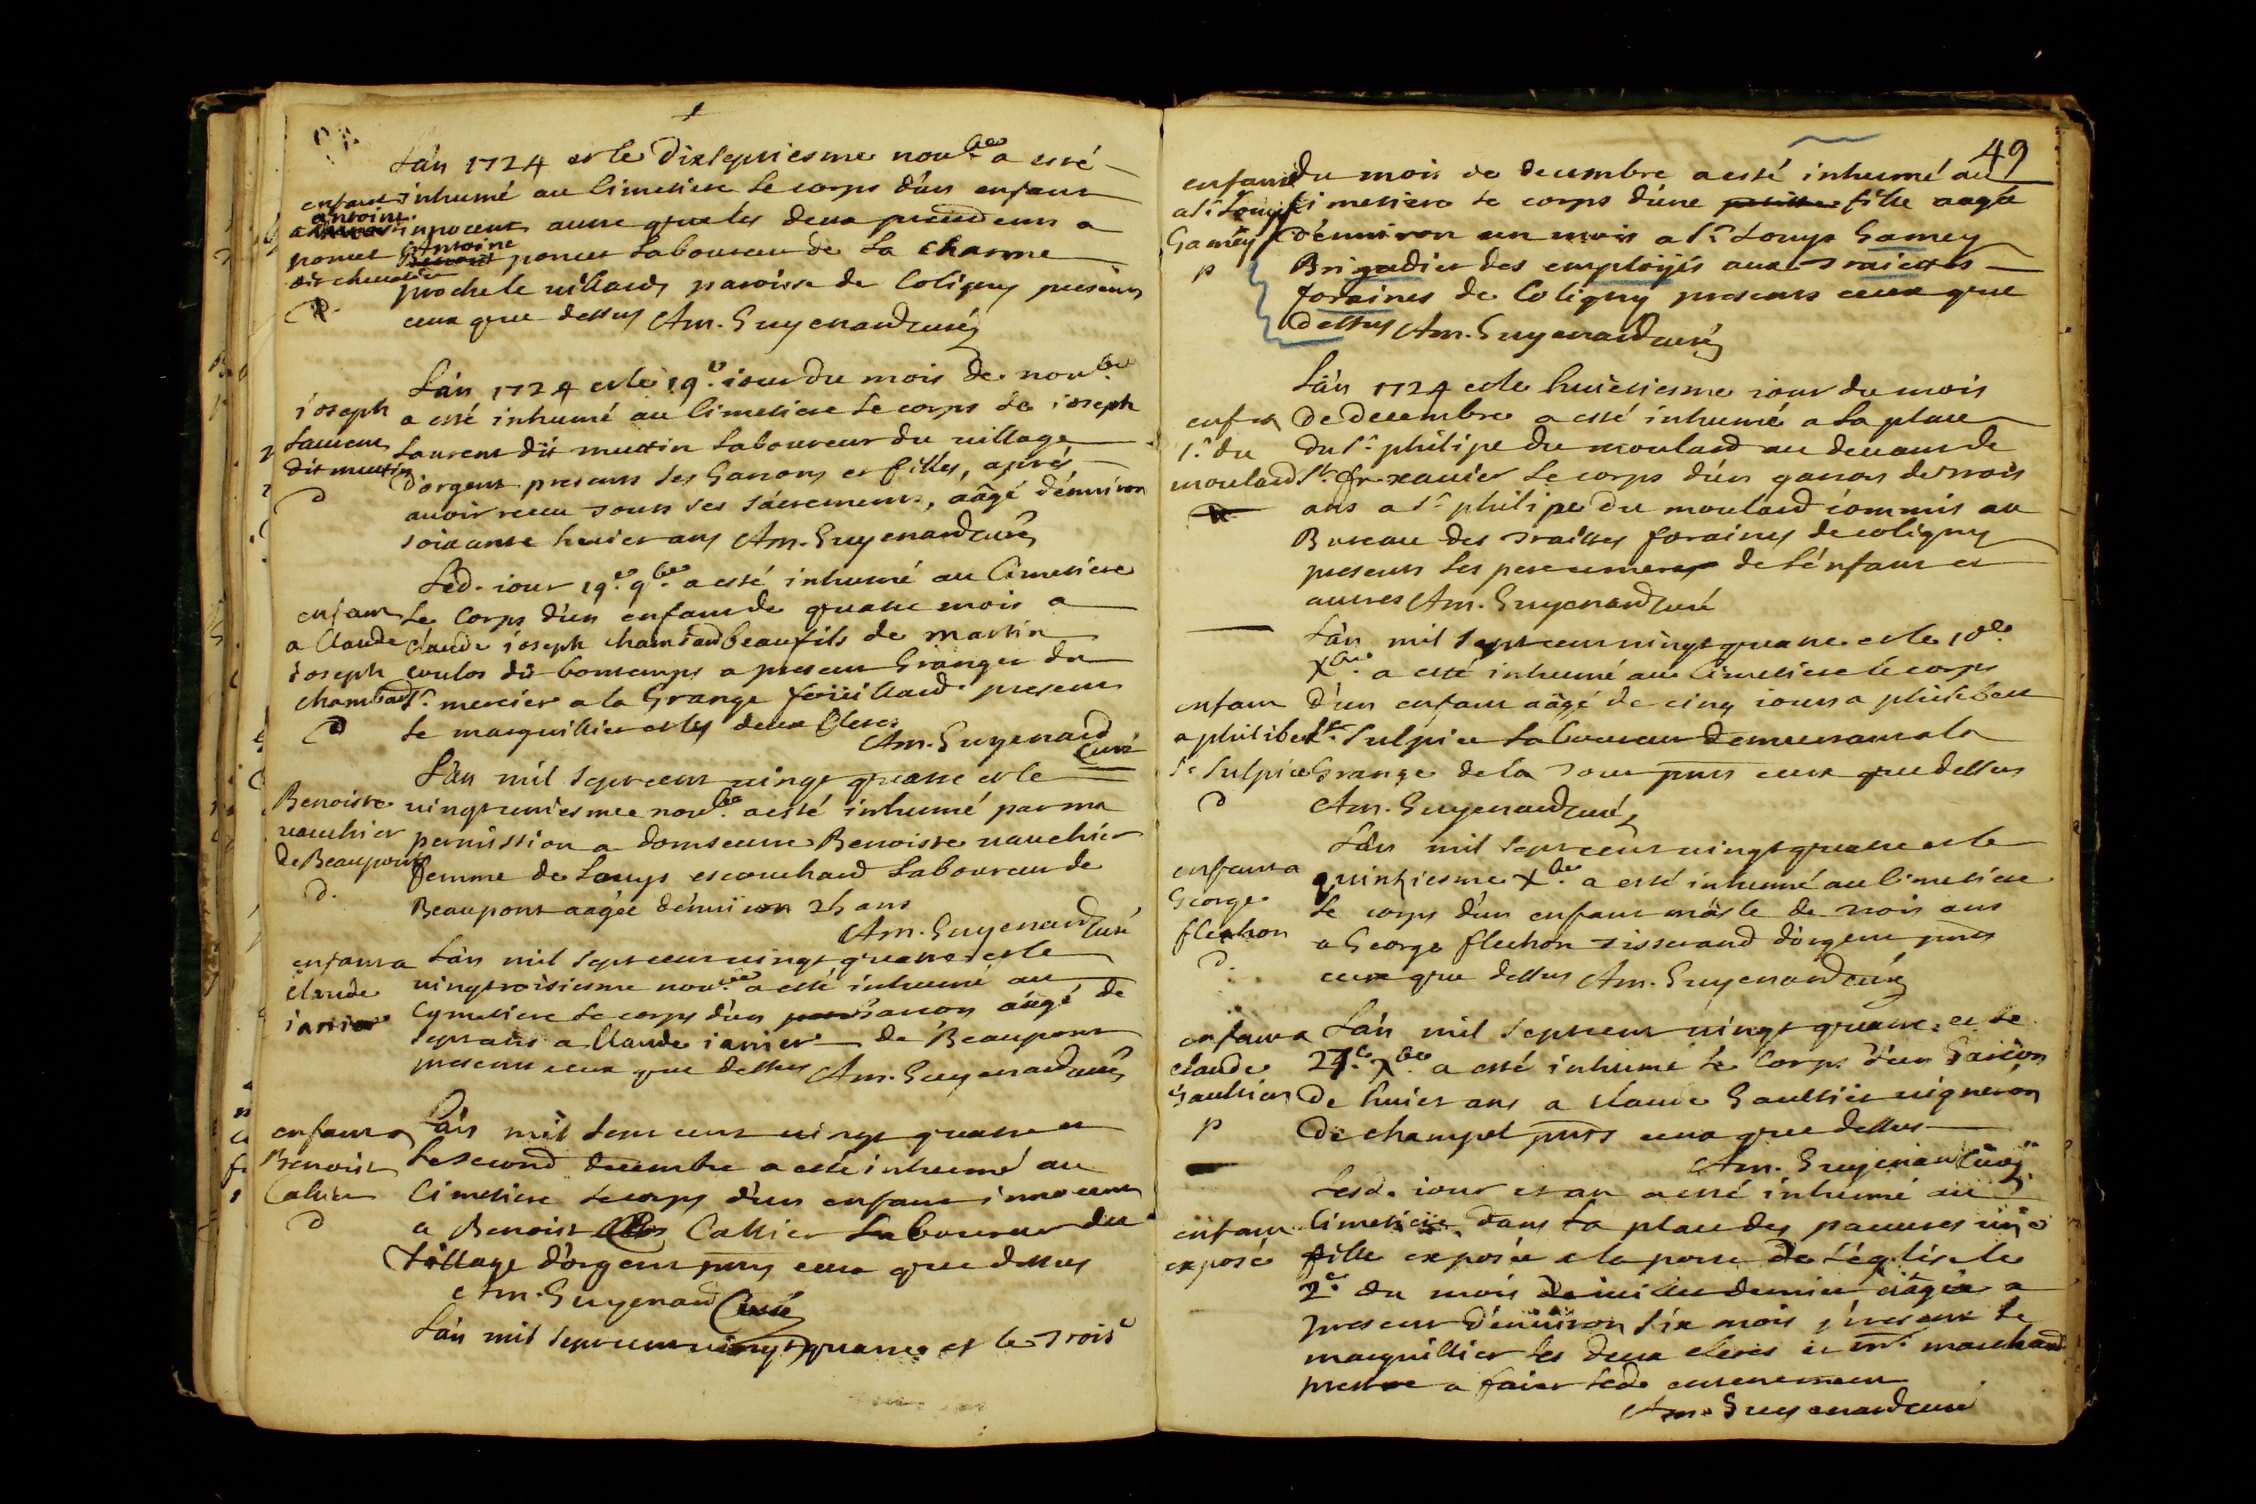 L'an 1724 et le dixseptiesme nov.bre a esté
enfant inhumé au Cimetiere le corps d'un enfant
a antoine innocent autre que les deux precedens a
poncet Antoine poncet laboureur de la charme
dit chevalier proche le villard, paroisse de Coligny presents
D. ceux que dessus Am. Guyenard curé
L'an 1724 et le 19.e iour du mois de nov.bre
ioseph a esté inhumé au Cimetiere le corps de ioseph
Laurent Laurent dit muttin laboureur du village
dit muttin d'orgent presents ses garcons et filles, aprés
D avoir receu tous ses sacremens, aâgé d'environ
soixante huict ans Am. Guyenard curé
Led. iour 19.e 9.bre a esté inhumé au Cimetiere
enfant le Corps d'un enfant de quatre mois a
a Claude Claude ioseph chambard beaufils de martin
ioseph coulos dit bontemps a present Granger du
chambard s.r mercier a la Grange feüillard present
D le marguillier et les deux Clercs
Am. Guyenard
Curé
L'an mil sept cent vingt quatre et le
Benoiste vingtuniesme nov.bre a esté inhumé par ma
vauchier permission a domseure Benoiste vauchier
de Beaupont femme de Louys escouchard laboureur de
D. Beaupont aagée d'environ 25 ans
Am. Guyenard Curé
enfant a L'an mil sept cent vingt quatre et le
Claude vingtroisiesme nov.bre a esté inhumé au
ianier Cymetiere le corps d'un garcon aâgé de
sept ans a Claude ianier de Beaupont
presents ceux que dessus Am. Guyenard curé
enfant a L'an mil sept cent vingt quatre et
Benoist le second decembre a esté inhumé au
Callier Cimetiere le corps d'un enfant innocent
D a Benoist Callier laboureur du
village d'orgent pnts ceux que dessus
Am. Guyenard Curé
L'an mil sept cent vingt quatre et le trois.e
49
enfant du mois de decembre a esté inhumé au
a s.r Louys Cimetiere le corps d'une fille aagée
Gamey d'environ un mois a s.r Louys Gamey
p Brigadier des employés aux traictes
foraines de Coligny presents ceux que
dessus Am. Guyenard curé
L'an 1724 et le huictiesme iour du mois
enfan de decembre a esté inhumé a la place
s.r du du s.r philipe du moulard au devant de
moulard st. fr. xavier le corps d'un garcon de trois
ans a s.r philipe du moulard commis au
Bureau des traittes foraines de coligny
presents les pere et mere de l'enfant et
autres Am. Guyenard Curé
L'an mil sept cent vingt quatre et le 10.e
X.bre a esté inhumé au Cimetiere le corps
enfant d'un enfant aâgé de cinq iours a philibert
a philibert st. Sulpice laboureur demeurant a la
st. Sulpice Grange de la tour pnts ceux que dessus
D Am. Guyenard curé
L'an mil sept cent vingt quatre et le
enfant a quinziesme X.bre a esté inhumé au Cimetiere
George le corps d'un enfant masle de trois ans
flechon a George flechon tisserand d'orgent pnts
D. ceux que dessus Am. Guyenard curé
enfant a L'an mil sept cent vingt quatre et le
claude 27.e X.bre a esté inhumé le Corps d'un Garcon
Gaultier de huict ans a claude Gaultier vigneron
p de champel pnts ceux que dessus
Am. Guyenard Curé
Lesd. iour et an a esté inhumé au
enfant Cimetiere dans la place des pauvres une
exposé fille exposée a la porte de l'église le
2.e du mois de iuillet dernier aâgée a
present d'environ six mois present le
marguillier les deux clercs et m.e marchand
prestre a faict led. enterrement
Am. Guyenard curé